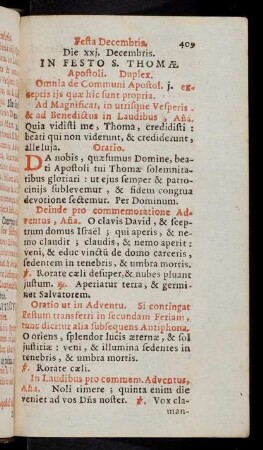 Festa Decembris. 409
Die xxj. Decembris.
IN FESTO S. THOMÆ
Apostoli. Duplex.
Omnia de Communi Apostol. j. ex-
ceptis ijs quæ hic sunt propria.
Ad Magnificat, in utrisque Vesperis,
& ad Benedictus in Laudibus, Aña.
Quia vidisti me, Thoma, credidisti:
beati qui non viderunt, & crediderunt,
alleluja. Oratio.
DA nobis, quæsumus Domine, bea-
ti Apostoli tui Thomæ solemnita-
tibus gloriari: ut ejus semper & patro-
cinijs sublevemur, & fidem congrua
devotione sectemur. Per Dominum.
Deinde pro commemoratione Ad-
ventus, Aña. O clavis David, & sce-
ptrum domus Israël; qui aperis, & ne-
mo claudit; claudis, & nemo aperit:
veni, & educ vinctũ de domo carceris,
sedentem in tenebris, & umbra mortis.
℣. Rorate cæli desuper, & nubes pluant
justum. ℟. Aperiatur terra, & germi-
net Salvatorem.
Oratio ut in Adventu. Si contingat
Festum transferri in secundam Feriam,
tunc dicitur alia subsequens Antiphona.
O oriens, splendor lucis æternæ, & sol
justitiæ: veni, & illumina sedentes in
tenebris, & umbra mortis.
℣. Rorate cæli.
In Laudibus pro commem. Adventus,
Aña. Noli timere; quinta enim die
veniet ad vos Dñs noster. ℣. Vox cla-
man-